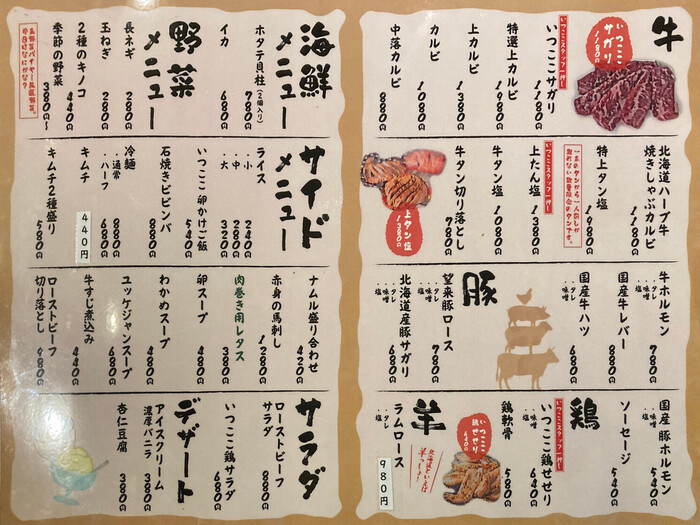 牛
いつここサガリ 1180円
いつここスタッフ一押し
いつここサガリ
1180円
特選上カルビ
1980円
上カルビ
1380円
カルビ
1080円
中落カルビ
880円
北海道ハーブ牛
焼きしゃぶカルビ
1180円
特上タン塩
1980円
いつここスタッフ一押し
上たん塩
1380円
牛タン塩
1080円
牛タン切り落とし
780円
上タン塩 1380円
牛ホルモン
・・タレ・味噌・塩
780円
国産牛レバー
880円
国産牛ハツ
・・タレ・味噌・塩
680円
豚
望来豚ロース
・・タレ・味噌・塩
780円
北海道産豚サガリ
・・タレ・味噌・塩
680円
国産豚ホルモン
・・タレ・味噌・塩
540円
ソーセージ
540円
鶏
いつここスタッフ一押し
いつここ鶏せせり
・・タレ・味噌・塩
640円
鶏軟骨
580円
いつここ鶏せせり 640円
羊
北海道といえば羊っしょ!
ラムロース
・・タレ・塩
980円
海鮮メニュー
ホタテ貝柱(2個入り)
780円
イカ
680円
野菜メニュー
長ネギ
280円
玉ねぎ
280円
2種のキノコ
440円
季節の野菜
380円〜
サイドメニュー
ライス
・・小 240円
・・中 280円
・・大 320円
いつここ 卵かけご飯
540円
石焼きビビンバ
880円
冷麺
・・通常 880円
・・ハーフ 680円
キムチ
440円
キムチ2種盛り
580円
ナムル盛り合わせ
420円
赤身の馬刺し
1280円
肉巻き用レタス
380円
卵スープ
480円
わかめスープ
480円
ユッケジャンスープ
680円
牛すじ煮込み
440円
ローストビーフ
切り落とし
980円
サラダ
ローストビーフ
サラダ
880円
いつここ鶏サラダ
680円
デザート
アイスクリーム
濃厚バニラ
380円
杏仁豆腐
380円